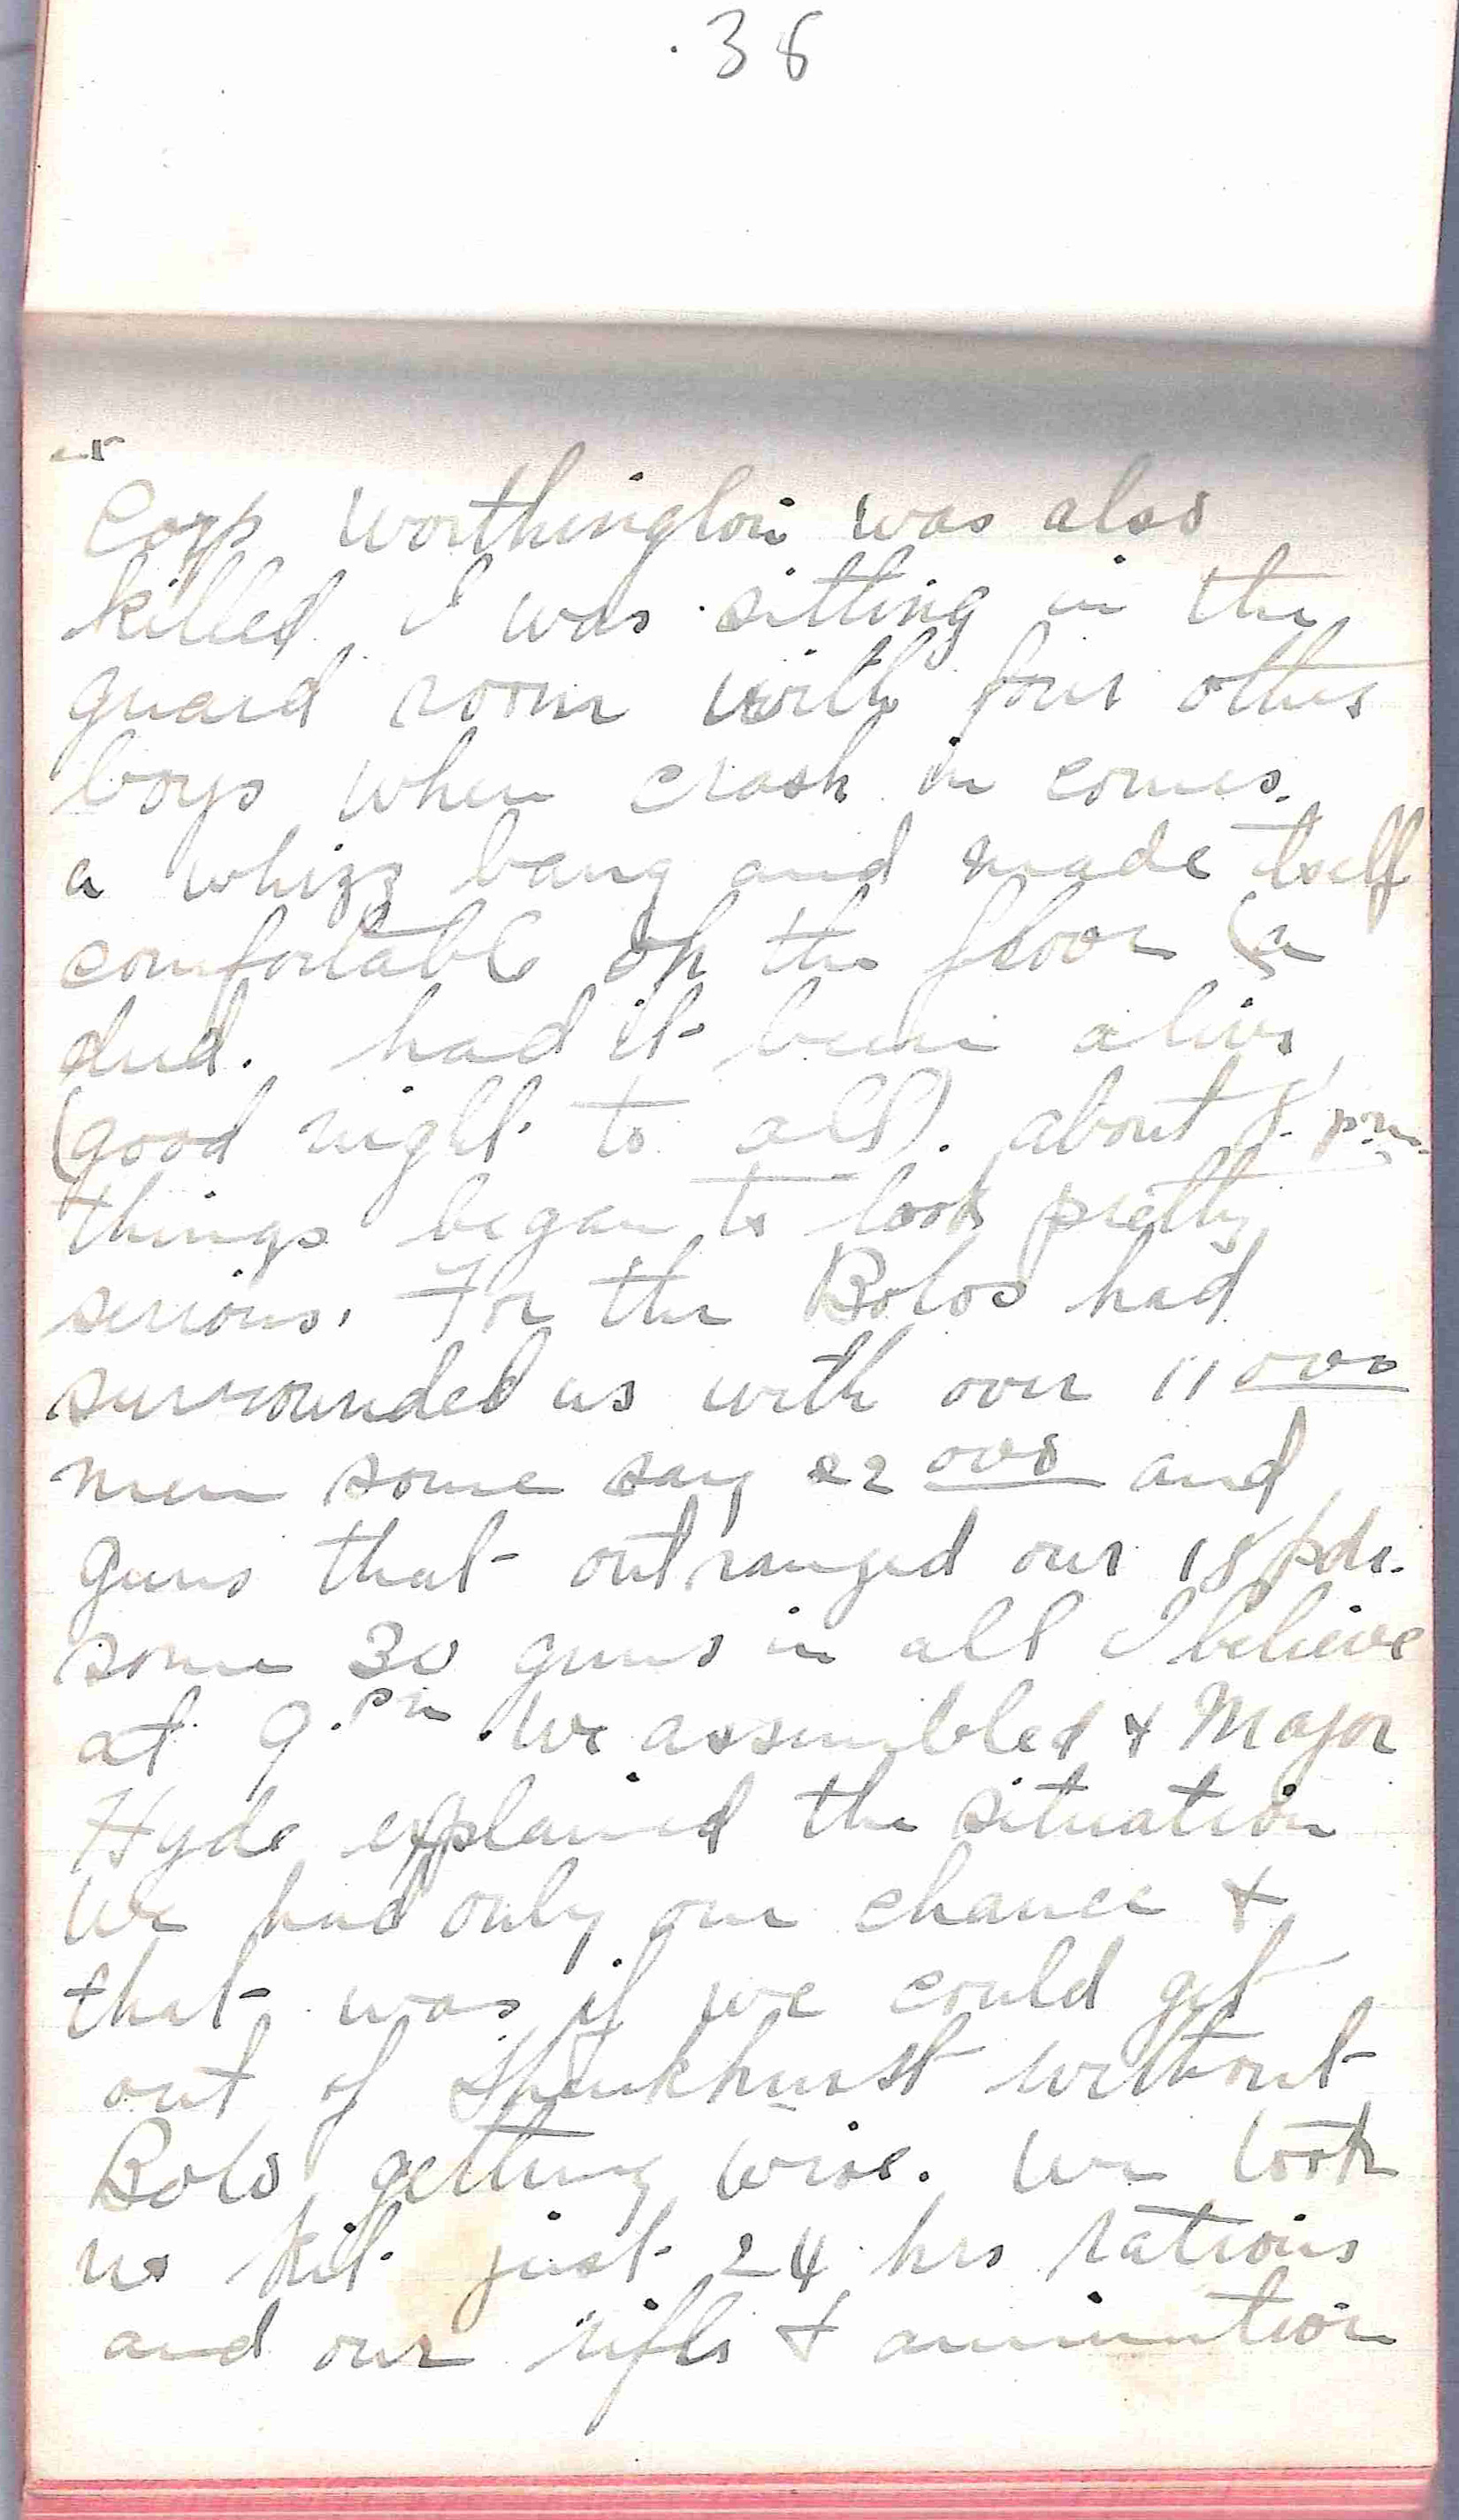 38
Corp Worthington was also
killed. I was sitting in the
guard room with four other
boys when crash in comes
a whizz bang and made itself
comfortable on the floor (a
dud. had it been alive,
(good night to all). about 8 pm.
things began to look pretty
serious. For the Bolos had
surrounded us with over 11000
men some say 22000 and
guns that outranged our 18 pdr.
some 30 guns in all I believe
at 9.pm We assembled & Major
Hyde explained the situation
We had only one chance &
that was if we could get
out of without
Bolo getting wise. We took
no kit just 24 hrs rations
and our rifls & ammuntion